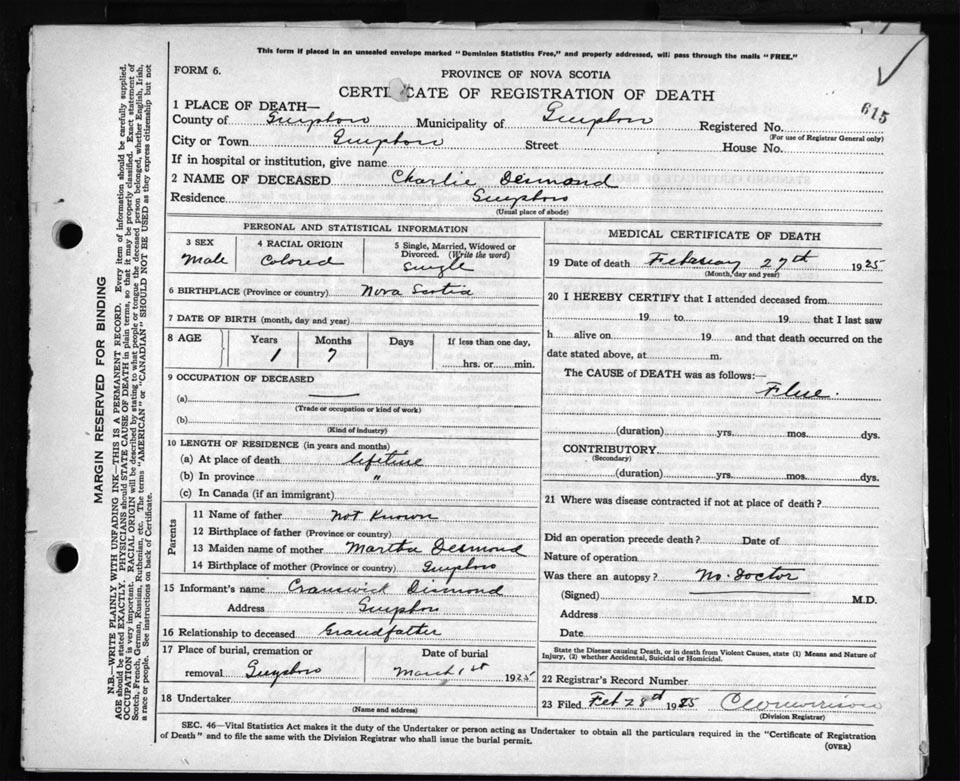 This form if placed in an unsealed envelope marked "Dominion Statistics Free," and properly addressed, will pass through the mails "FREE."
FORM 6.
PROVINCE OF NOVA SCOTIA
CERTI CATE OF REGISTRATION OF DEATH
615
1 PLACE OF DEATH—
County of Guysboro Municipality of Guysboro Registered No.
(For use of Registrar General only)
City or Town Guysboro Street House No.
If in hospital or institution, give name
2 NAME OF DECEASED Charlie Desmond
Residence Guysboro
(Usual place of abode)
PERSONAL AND STATISTICAL INFORMATION
3 SEX 4 RACIAL ORIGIN 5 Single, Married, Widowed or Divorced. (Write the word)
Male Colored Single
6 BIRTHPLACE (Province or country) Nova Scotia
7 DATE OF BIRTH (month, day and year)
8 AGE Years Months Days If less than one day,
1 7 hrs. or min.
9 OCCUPATION OF DECEASED
(a) —
(Trade or occupation or kind of work)
(b)
(Kind of industry)
10 LENGTH OF RESIDENCE (in years and months)
(a) At place of death lifetime
(b) In province "
(c) In Canada (if an immigrant)
Parents
11 Name of father Not Known
12 Birthplace of father (Province or country)
13 Maiden name of mother Martha Desmond
14 Birthplace of mother (Province or country) Guysboro
15 Informant's name Desmond
Address Guysboro
16 Relationship to deceased Grandfather
17 Place of burial, cremation or removal Guysboro
Date of burial March 1st 1925
18 Undertaker
(Name and address)
MEDICAL CERTIFICATE OF DEATH
19 Date of death February 27th 1925
(Month, day and year)
20 I HEREBY CERTIFY that I attended deceased from
19 to 19 that I last saw
h alive on 19 and that death occurred on the
date stated above, at m.
The CAUSE of DEATH was as follows:—
Flue.
(duration) yrs. mos. dys.
CONTRIBUTORY
(Secondary)
(duration) yrs. mos. dys.
21 Where was disease contracted if not at place of death?
Did an operation precede death? Date of
Nature of operation
Was there an autopsy? No. Doctor
(Signed) M.D.
Address
Date
State the Disease causing Death, or in death from Violent Causes, state (1) Means and Nature of
Injury, (2) whether Accidental, Suicidal or Homicidal.
22 Registrar's Record Number
23 Filed Feb 28d 1925
(Division Registrar)
SEC. 46—Vital Statistics Act makes it the duty of the Undertaker or person acting as Undertaker to obtain all the particulars required in the "Certificate of Registration
of Death" and to file the same with the Division Registrar who shall issue the burial permit.
(OVER)
MARGIN RESERVED FOR BINDING
N.B—WRITE PLAINLY WITH UNFADING INK—THIS IS A PERMANENT RECORD. Every item of information should be carefully supplied.
AGE should be stated EXACTLY. PHYSICIANS should STATE CAUSE OF DEATH in plain terms, so that it may be properly classified. Exact statement of
OCCUPATION is very important. RACIAL ORIGIN will be described by stating to what people or tongue the deceased person belonged, whether English, Irish,
Scotch, French, German, Russian, Ruthenian, etc. The terms "AMERICAN" or "CANADIAN" SHOULD NOT BE USED as they express citizenship but not
a race or people. See instructions on back of Certificate.